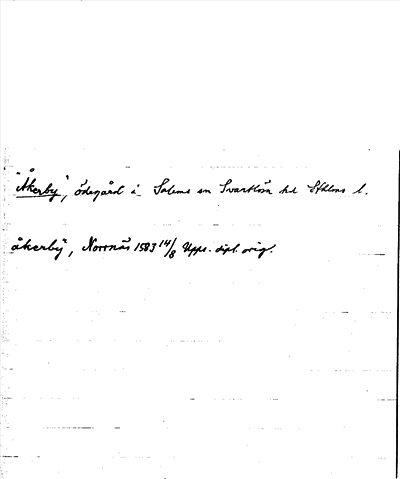 "Åkerby", ödegård i Salems sn Svartlösa hd Sthlms l.
åkerby", Norrnäs 1583 14/8 Upps. dipl. orig.